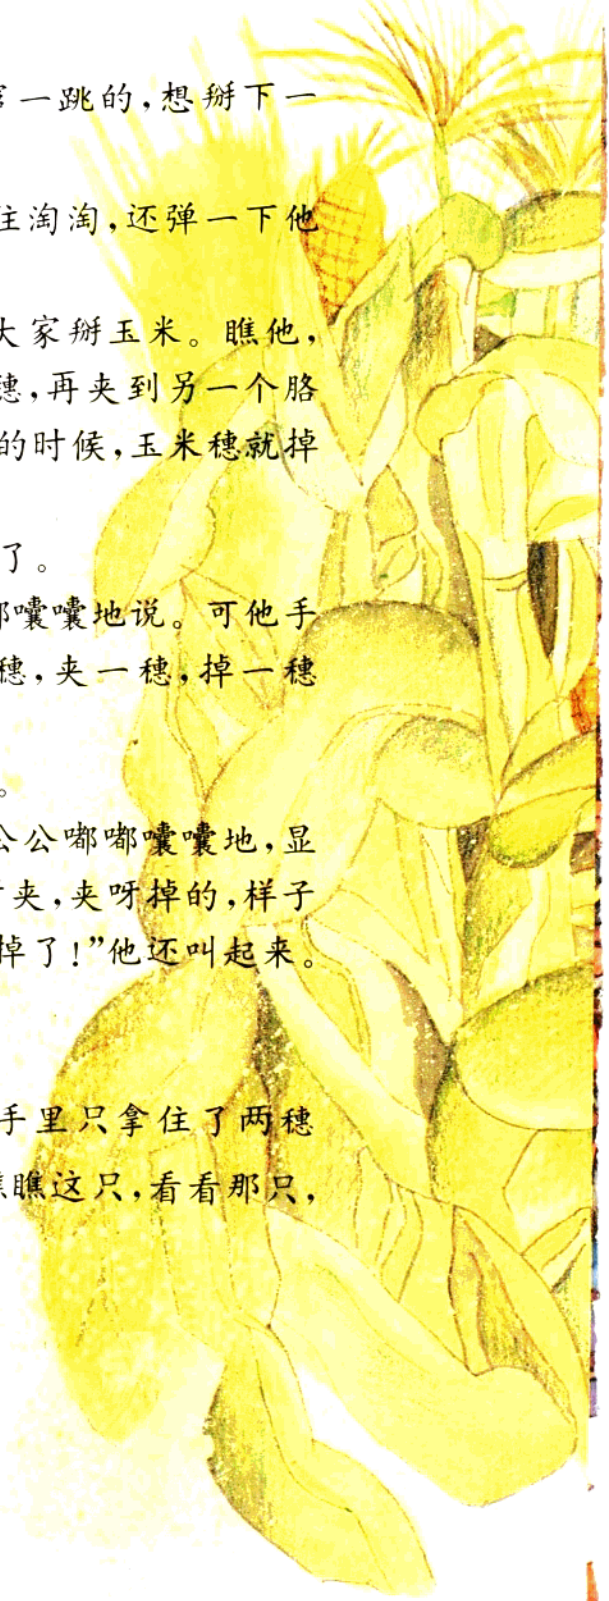 一跳的，想掰下一
住淘淘，还弹一下他
大家掰玉米。瞧他，
穗，再夹到另一个胳
的时候，玉米穗就掉
了。
嘟囔囔地说。可他手
穗，夹一穗，掉一穗
。
公公嘟嘟囔囔地，显
夹，夹呀掉的，样子
掉了！”他还叫起来。
手里只拿住了两穗
瞧瞧这只，看看那只，